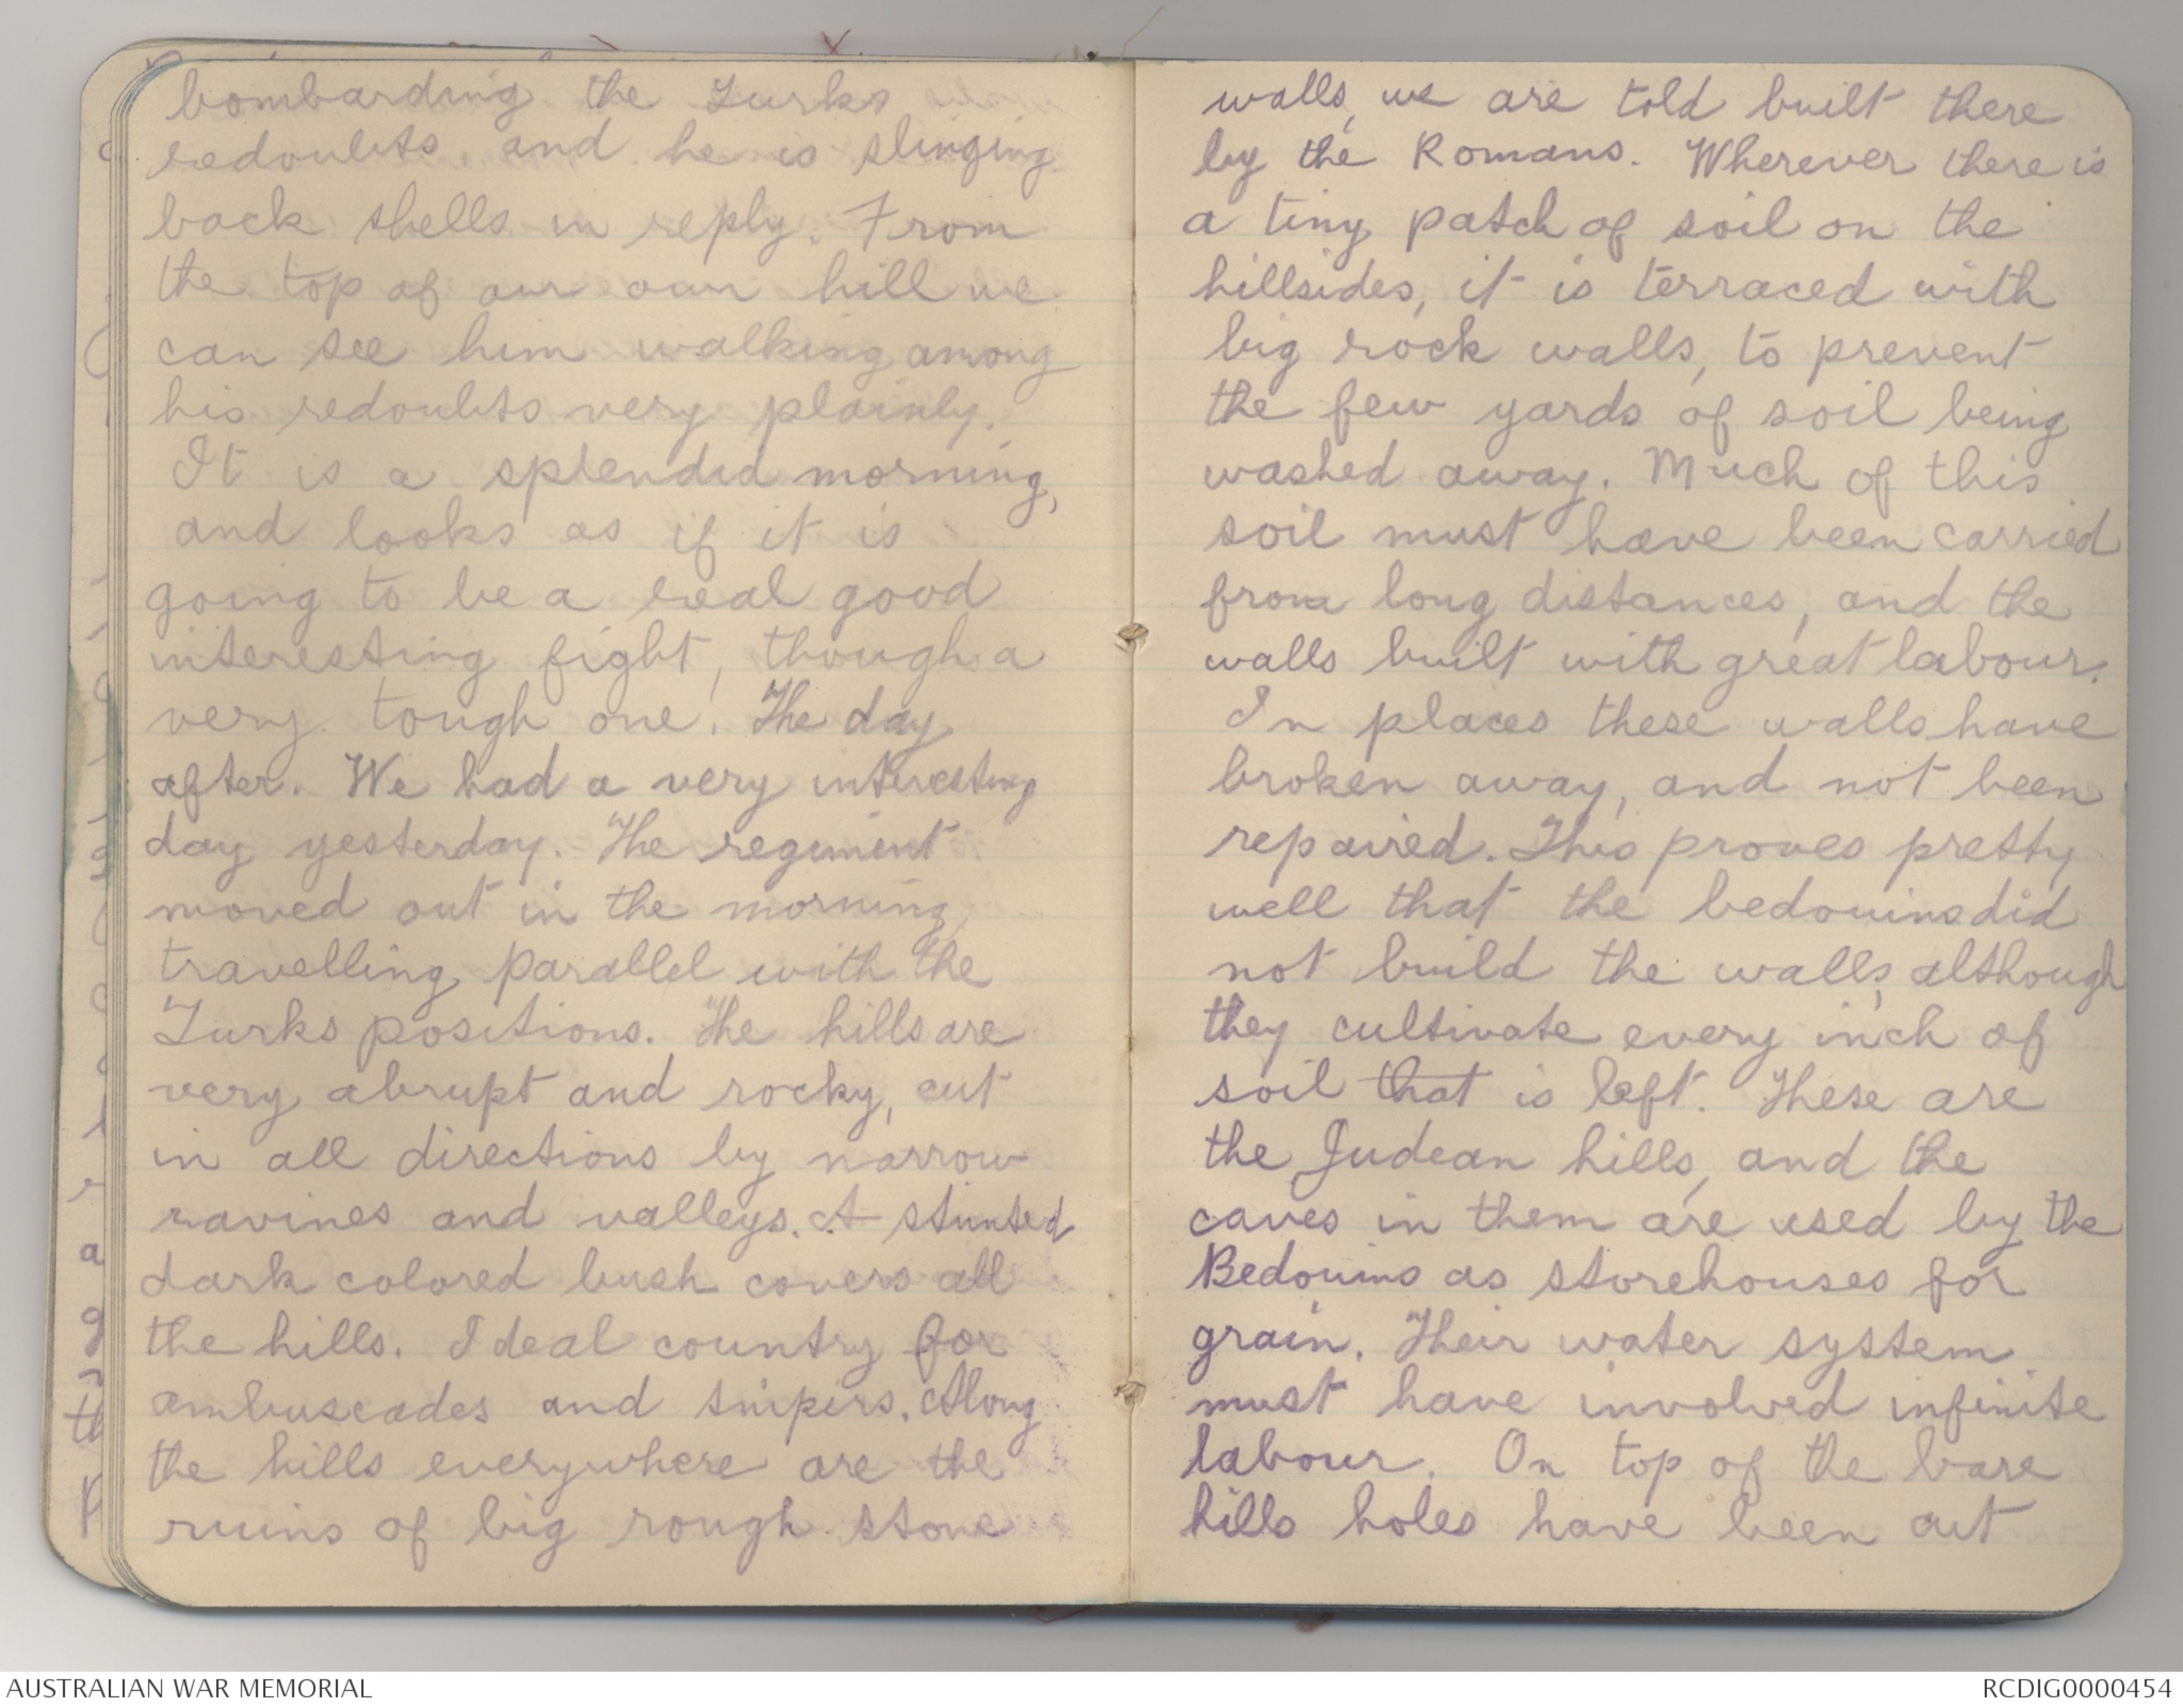 bombarding the Turks
redoubts, and he is slinging
back shells in reply. From
the top of our own hill we
can see him walking among
his redoubts very plainly.
It is a splendid morning,
and looks as if it is
going to be a real good
interesting fight, though a
very tough one. The day
after. We had a very interesting
day yesterday. The regiment
moved out in the morning,
travelling parallel with the
Turks positions. The hills are
very abrupt and rocky, cut
in all directions by narrow
ravines and valleys. A stunted
dark colored bush covers all
the hills. Ideal country for
ambuscades and snipers. Along
the hills everywhere are the
ruins of big rough stone
walls, we are told built there
by the Romans. Wherever there is
a tiny patch of soil on the
hillsides, it is terraced with
big rock walls, to prevent
the few yards of soil being
washed away. Much of this
soil must have been carried
from long distances, and the
walls built with great labour.
In places these walls have
broken away, and not been
repaired. This proves pretty
well that the bedouins did
not build the walls, although
they cultivate every inch of
soil that is left. These are
the Judean hills, and the
caves in them are used by the
Bedouins as storehouses for
grain. Their water system
must have involved infinite
labour. On top of the bare
hills holes have been cut
AUSTRALIAN WAR MEMORIAL
RCDIG0000454